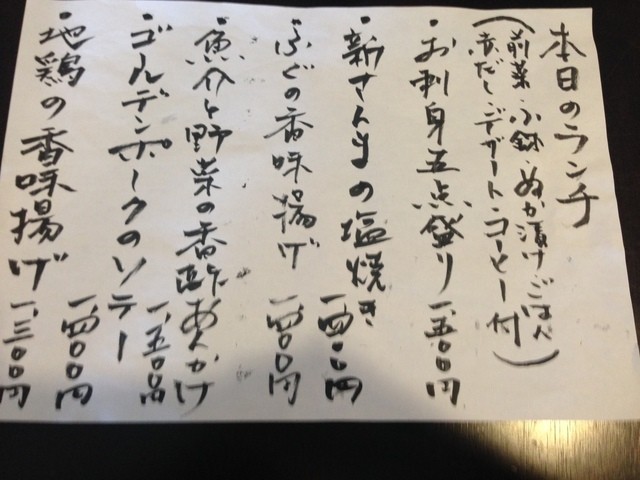 本日のランチ
(前菜・小鉢・ぬか漬け・ごはん
赤だし・デザート・コーヒー付)
・お刺身五点盛り 一、五〇〇円
・新さんまの塩焼き 一、四〇〇円
・ふぐの香味揚げ 一、四〇〇円
・魚介と野菜の香酢あんかけ 一、五〇〇円
・ゴルデンポークのソテー 一、四〇〇円
・地鶏の香味揚げ 一、三〇〇円